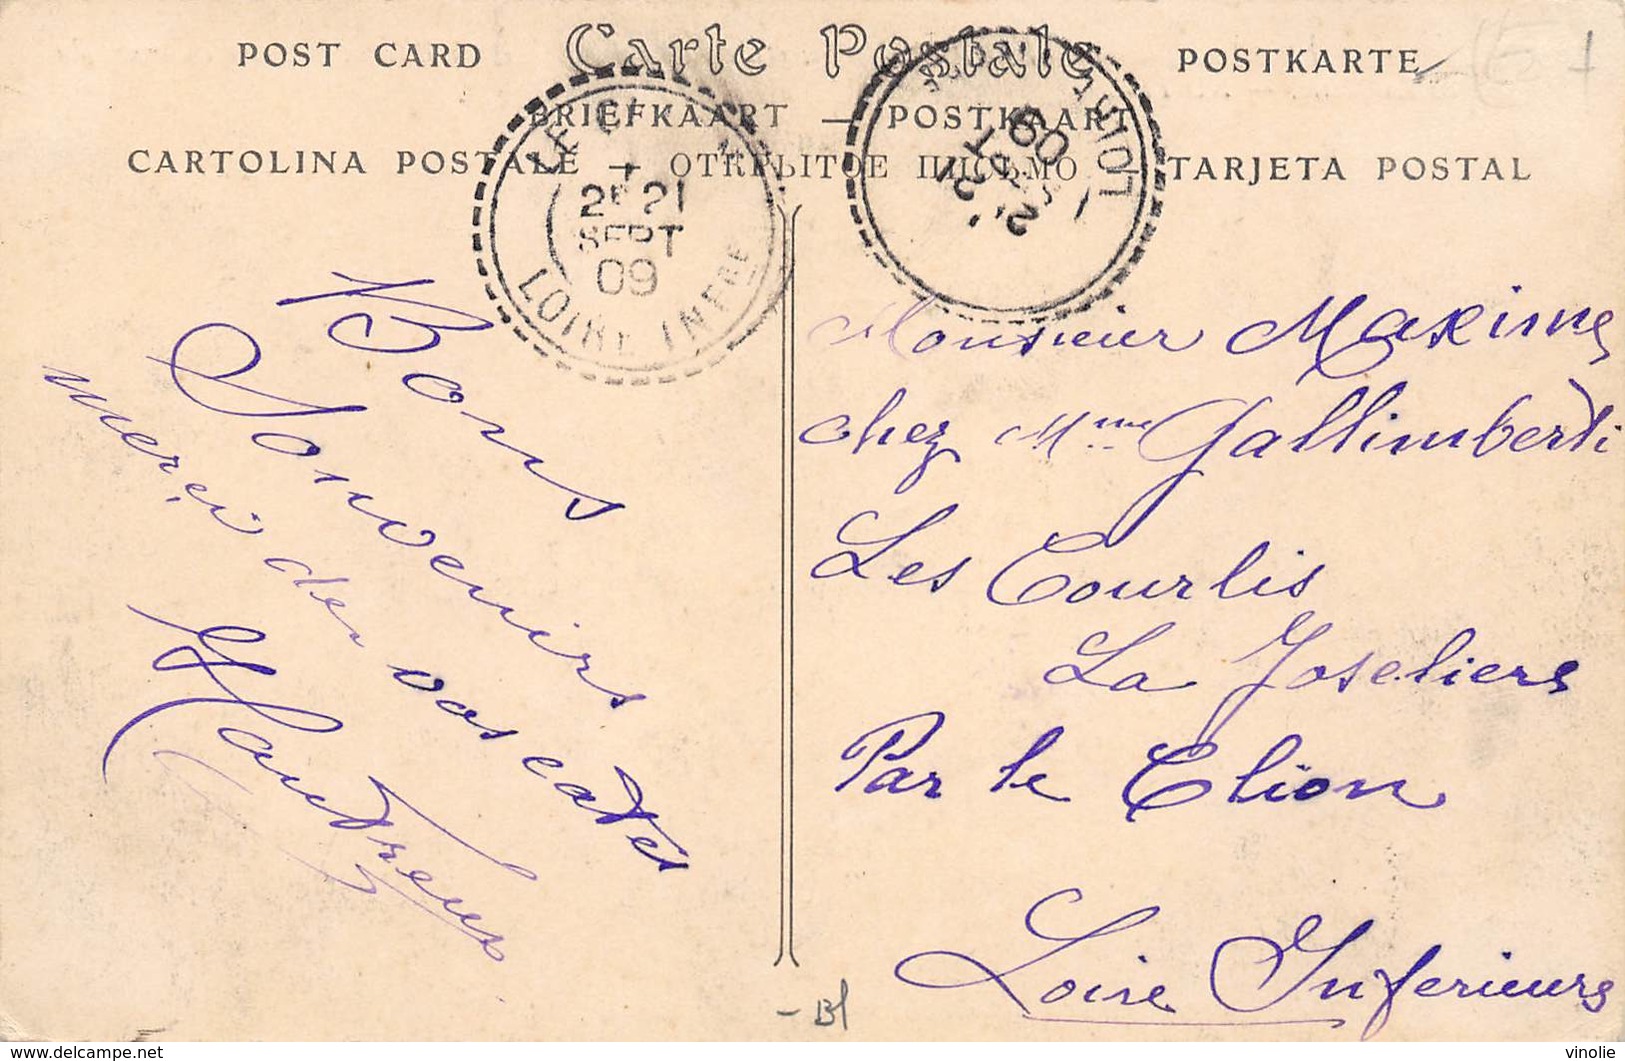 POST CARD Carte Postale POSTKARTE
BRIEFKAART — POSTKAART
CARTOLINA POSTALE — ОТКРЫТОЕ ПИСЬМО — TARJETA POSTAL
21
SEPT
09
LOIRE INFRE
09
LOIRE
Bons
Souvenirs
merci de vos cartes
Monsieur Maxime
chez Mme Gallimberti
Les Courlis
La Joseliere
Par le Clion
Loire Inferieure
- Bf
delcampe.net
vinolie